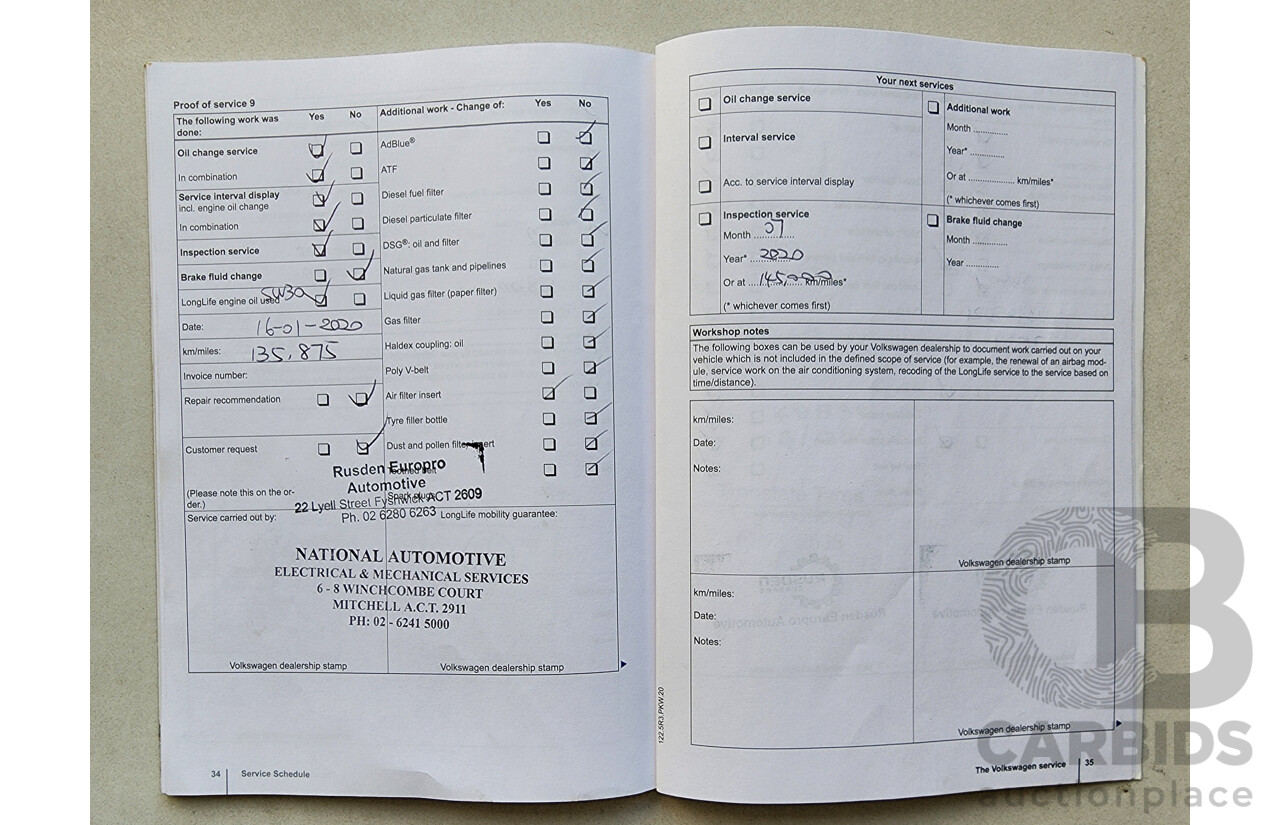 Proof of service 9
The following work was done: Yes No
Oil change service
In combination
Service interval display
incl. engine oil change
In combination
Inspection service
Brake fluid change
LongLife engine oil used 5W30
Date: 16-01-2020
km/miles: 135,875
Invoice number:
Repair recommendation
Customer request
(Please note this on the or-
der.)
Additional work - Change of: Yes No
AdBlue®
ATF
Diesel fuel filter
Diesel particulate filter
DSG®: oil and filter
Natural gas tank and pipelines
Liquid gas filter (paper filter)
Gas filter
Haldex coupling: oil
Poly V-belt
Air filter insert
Tyre filler bottle
Dust and pollen filter insert
Spark plugs
Rusden Europro
Automotive
22 Lyell Street Fyshwick ACT 2609
Ph. 02 6280 6263
Service carried out by:
LongLife mobility guarantee:
NATIONAL AUTOMOTIVE
ELECTRICAL & MECHANICAL SERVICES
6 - 8 WINCHCOMBE COURT
MITCHELL A.C.T. 2911
PH: 02 - 6241 5000
Volkswagen dealership stamp
Volkswagen dealership stamp
34 Service Schedule
Your next services
Oil change service
Interval service
Acc. to service interval display
Inspection service
Month ..07........
Year* ..2020........
Or at ....145,000.... km/miles*
(* whichever comes first)
Additional work
Month ............
Year* ............
Or at ................ km/miles*
(* whichever comes first)
Brake fluid change
Month ............
Year ............
Workshop notes
The following boxes can be used by your Volkswagen dealership to document work carried out on your
vehicle which is not included in the defined scope of service (for example, the renewal of an airbag mod-
ule, service work on the air conditioning system, recoding of the LongLife service to the service based on
time/distance).
km/miles:
Date:
Notes:
Volkswagen dealership stamp
km/miles:
Date:
Notes:
Volkswagen dealership stamp
122.5R3.PKW.20
The Volkswagen service 35
CARBIDS
auctionplace